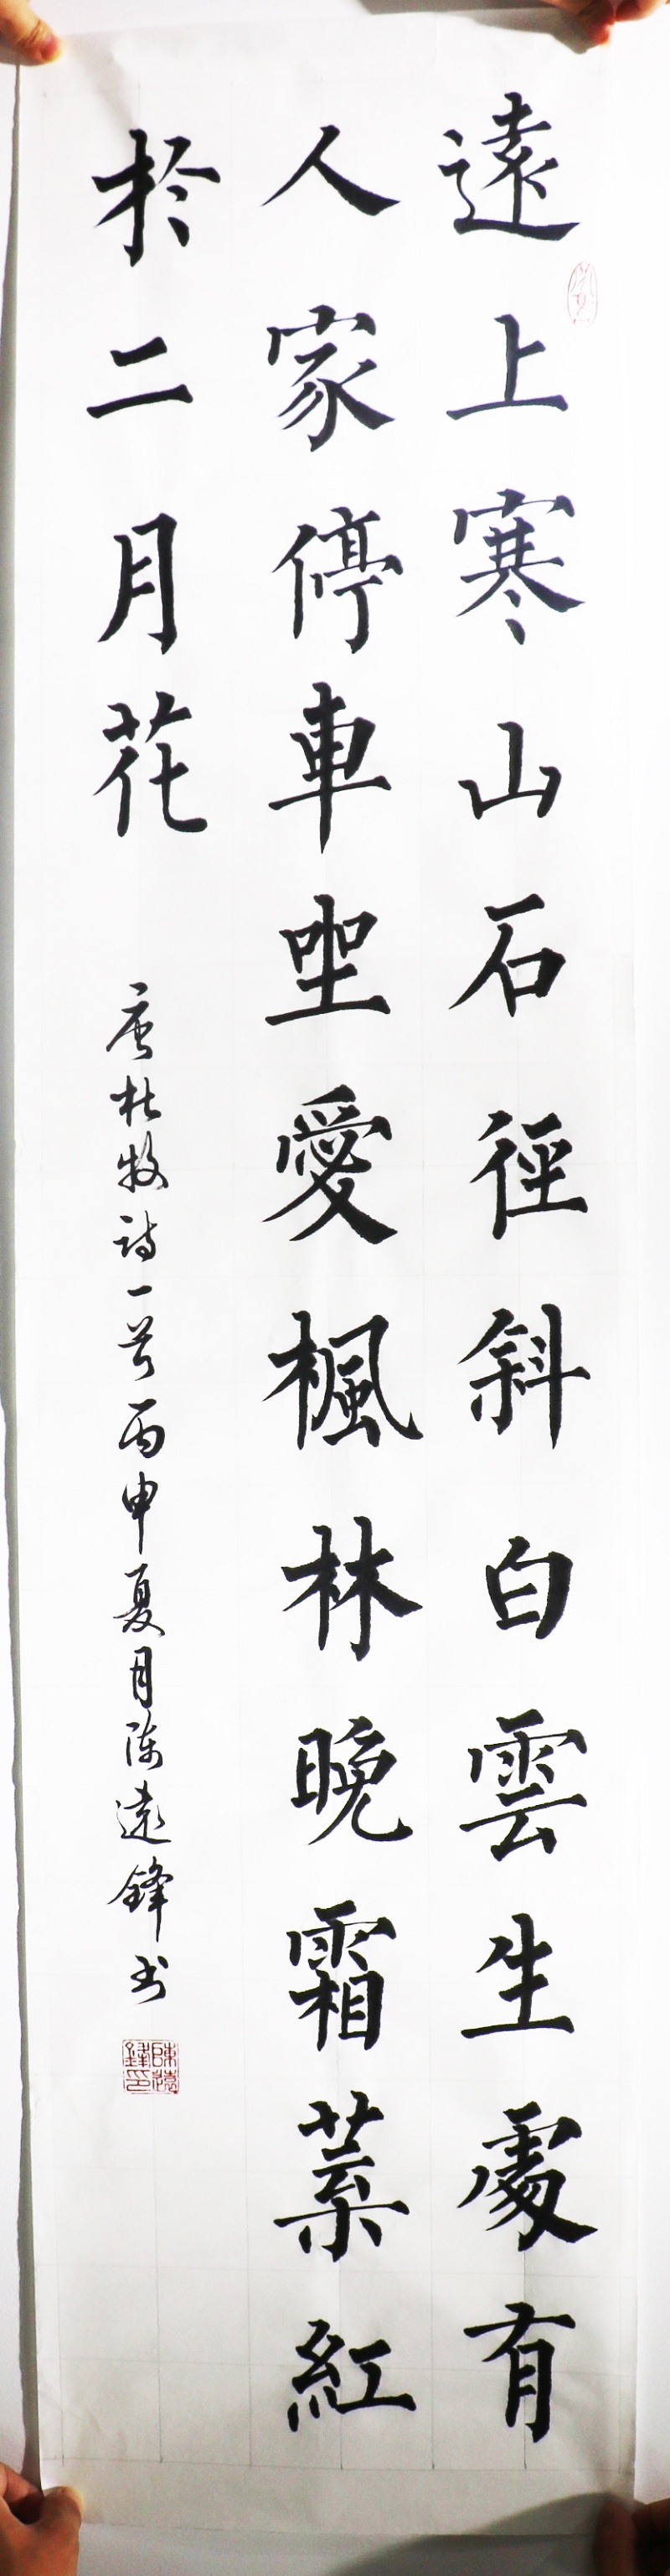 遠上寒山石徑斜白雲生處有
人家停車坐愛楓林晚霜葉紅
於二月花
唐杜牧诗一首丙申夏月陈遠鋒书
陳遠鋒印